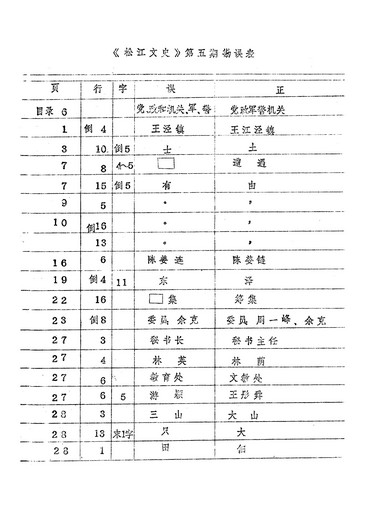 《松江文史》第五期勘误表
页 行 字 误 正
目录 6 党、政和机关、军、警 党政军警机关
1 倒 4 王泾镇 王江泾镇
3 10 倒5 士 土
7 8 4~5 □
7 15 倒5 有 由
9 5 〃 〃
10 倒16 〃 〃
13 〃 〃
16 6 陈姜连 陈姜链
19 倒4 11 东
22 16 □集 筹集
23 倒8 委员 余克 委员 周一峰、余克
27 3 秘书长 秘书主任
27 4 林英
27 6 教育处 文教处
27 6 5 游 王彤
28 3 三山 大山
28 13 末1字 只 大
28 1 田 佃